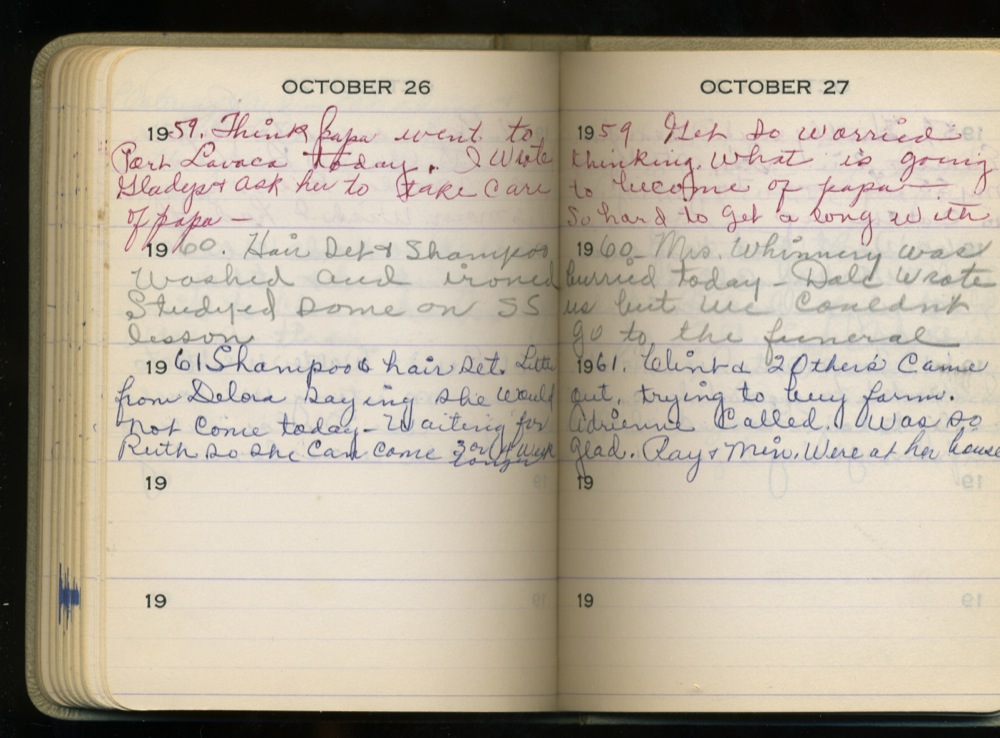 OCTOBER 26
1959. Think papa went to
Port Lavaca today. I wrote
Gladys & ask her to take care
of papa —
1960. Hair Set & Shampoo
Washed and ironed
Studyed some on SS
lesson
1961 Shampoo & hair set. Letter
from Delora saying she would
not come today - Waiting for
Ruth so she can come 3 or 4 week
longer
19
19
OCTOBER 27
1959 Get so worried
thinking what is going
to become of papa —
So hard to get a long with
1960 - Mrs. Whinnery was
burried today - Dale wrote
us but we couldnt
go to the funeral
1961. Clint & 2 others came
out, trying to buy farm.
Adrienne called. I was so
glad. Ray & Min. Were at her house
19
19